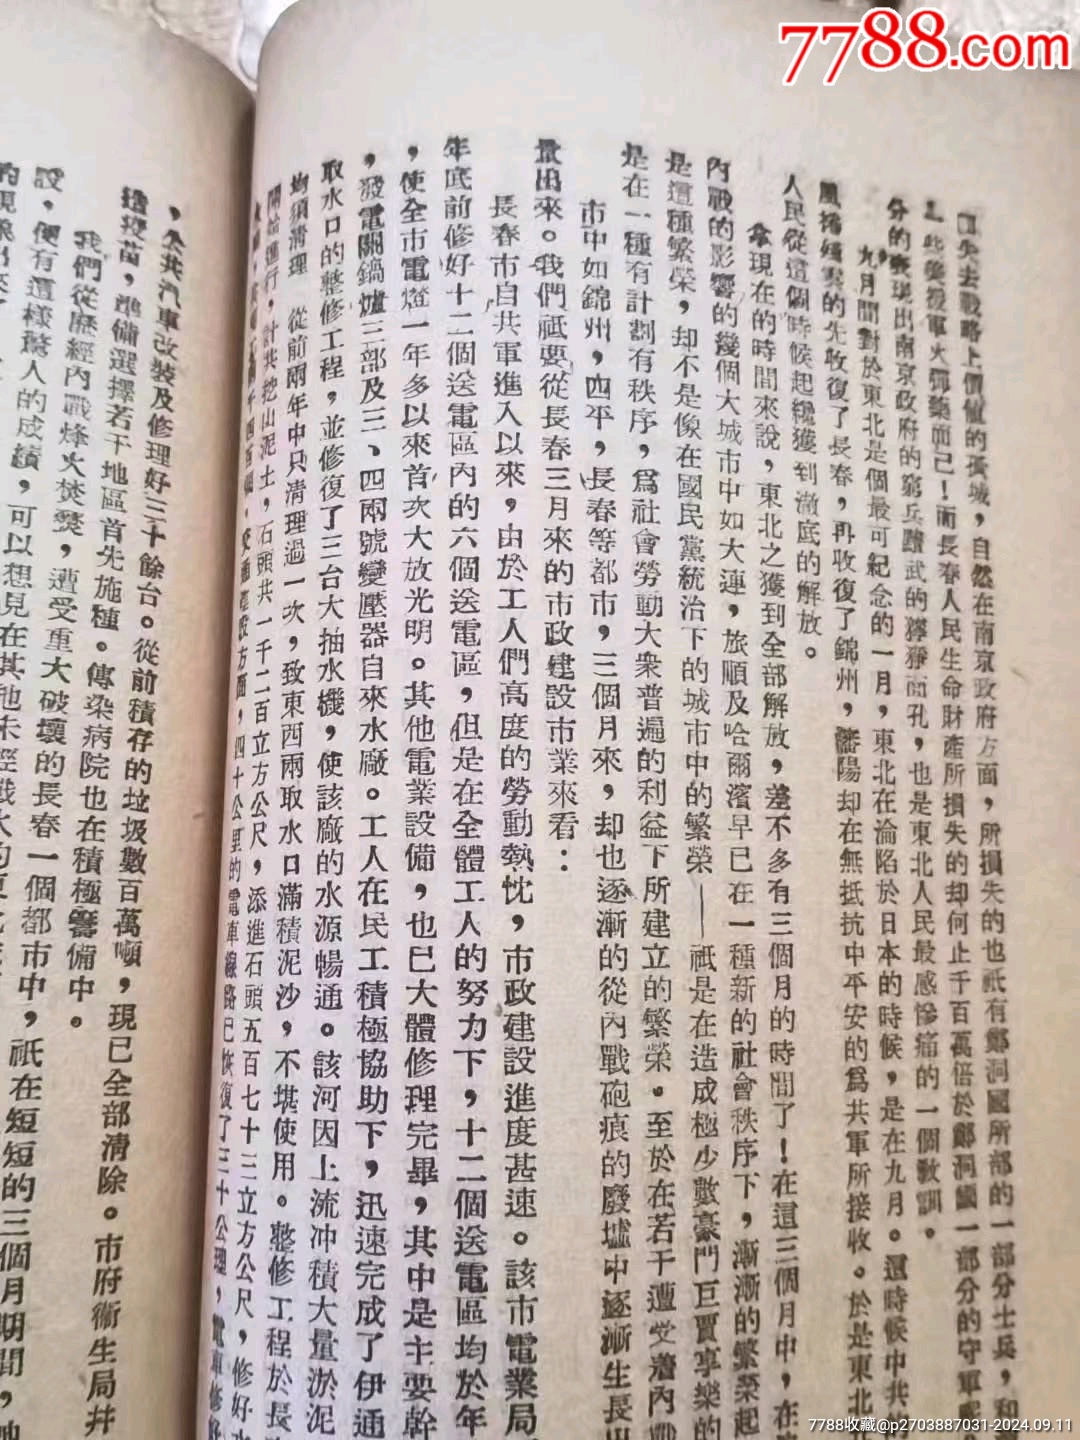 7788.com
失去戰略上價值的孤城，自然在南京政府方面，所損失的也祇有鄭洞國所部的一部分士兵，和
一些美援軍火彈藥而已！而長春人民生命財產所損失的却何止千百萬倍於鄭洞國一部分的守軍
分的表現出南京政府的窮兵黷武的猙獰面孔，也是東北人民最感慘痛的一個教訓。
九月間對於東北是個最可紀念的一月，東北在淪陷於日本的時候，是在九月。這時候中共
風捲殘雲的先收復了長春，再收復了錦州，瀋陽却在無抵抗中平安的爲共軍所接收。於是東北
人民從這個時候起纔獲到澈底的解放。
拿現在的時間來說，東北之獲到全部解放，差不多有三個月的時間了！在這三個月中，在
內戰的影響的幾個大城市中如大連，旅順及哈爾濱早已在一種新的社會秩序下，漸漸的繁榮起
是這種繁榮，却不是像在國民黨統治下的城市中的繁榮——祇是在造成極少數豪門巨賈享樂的
是在一種有計劃有秩序，爲社會勞動大衆普遍的利益下所建立的繁榮。至於在若干遭受着內戰
市中如錦州，四平，長春等都市，三個月來，却也逐漸的從內戰砲痕的廢墟中逐漸生長出
量出來。我們祇要從長春三月來的市政建設市業來看：
長春市自共軍進入以來，由於工人們高度的勞動熱忱，市政建設進度甚速。該市電業局
年底前修好十二個送電區內的六個送電區，但是在全體工人的努力下，十二個送電區均於年
，使全市電燈一年多以來首次大放光明。其他電業設備，也已大體修理完畢，其中是主要幹
，發電關鍋爐三部及三、四兩號變壓器自來水廠。工人在民工積極協助下，迅速完成了伊通
取水口的整修工程，並修復了三台大抽水機，使該廠的水源暢通。該河因上流冲積大量淤泥
均須清理 從前兩年中只清理過一次，致東西兩取水口滿積泥沙，不堪使用。整修工程於長
開始進行，計共挖山泥土，石頭共一千二百立方公尺，添進石頭五百七十三立方公尺，修好
交通建設方面，四十公里的電車線路已恢復了三十公理，電車修好
，公共汽車改裝及修理好三十餘台。從前積存的垃圾數百萬噸，現已全部清除。市府衛生局幷
疫苗，準備選擇若干地區首先施種。傳染病院也在積極籌備中。
我們從歷經內戰烽火焚燬，遭受重大破壞的長春一個都市中，祇在短短的三個月期間，
設，便有這樣驚人的成績，可以想見在其他未經戰火的
7788收藏@p2703887031-2024.09.11